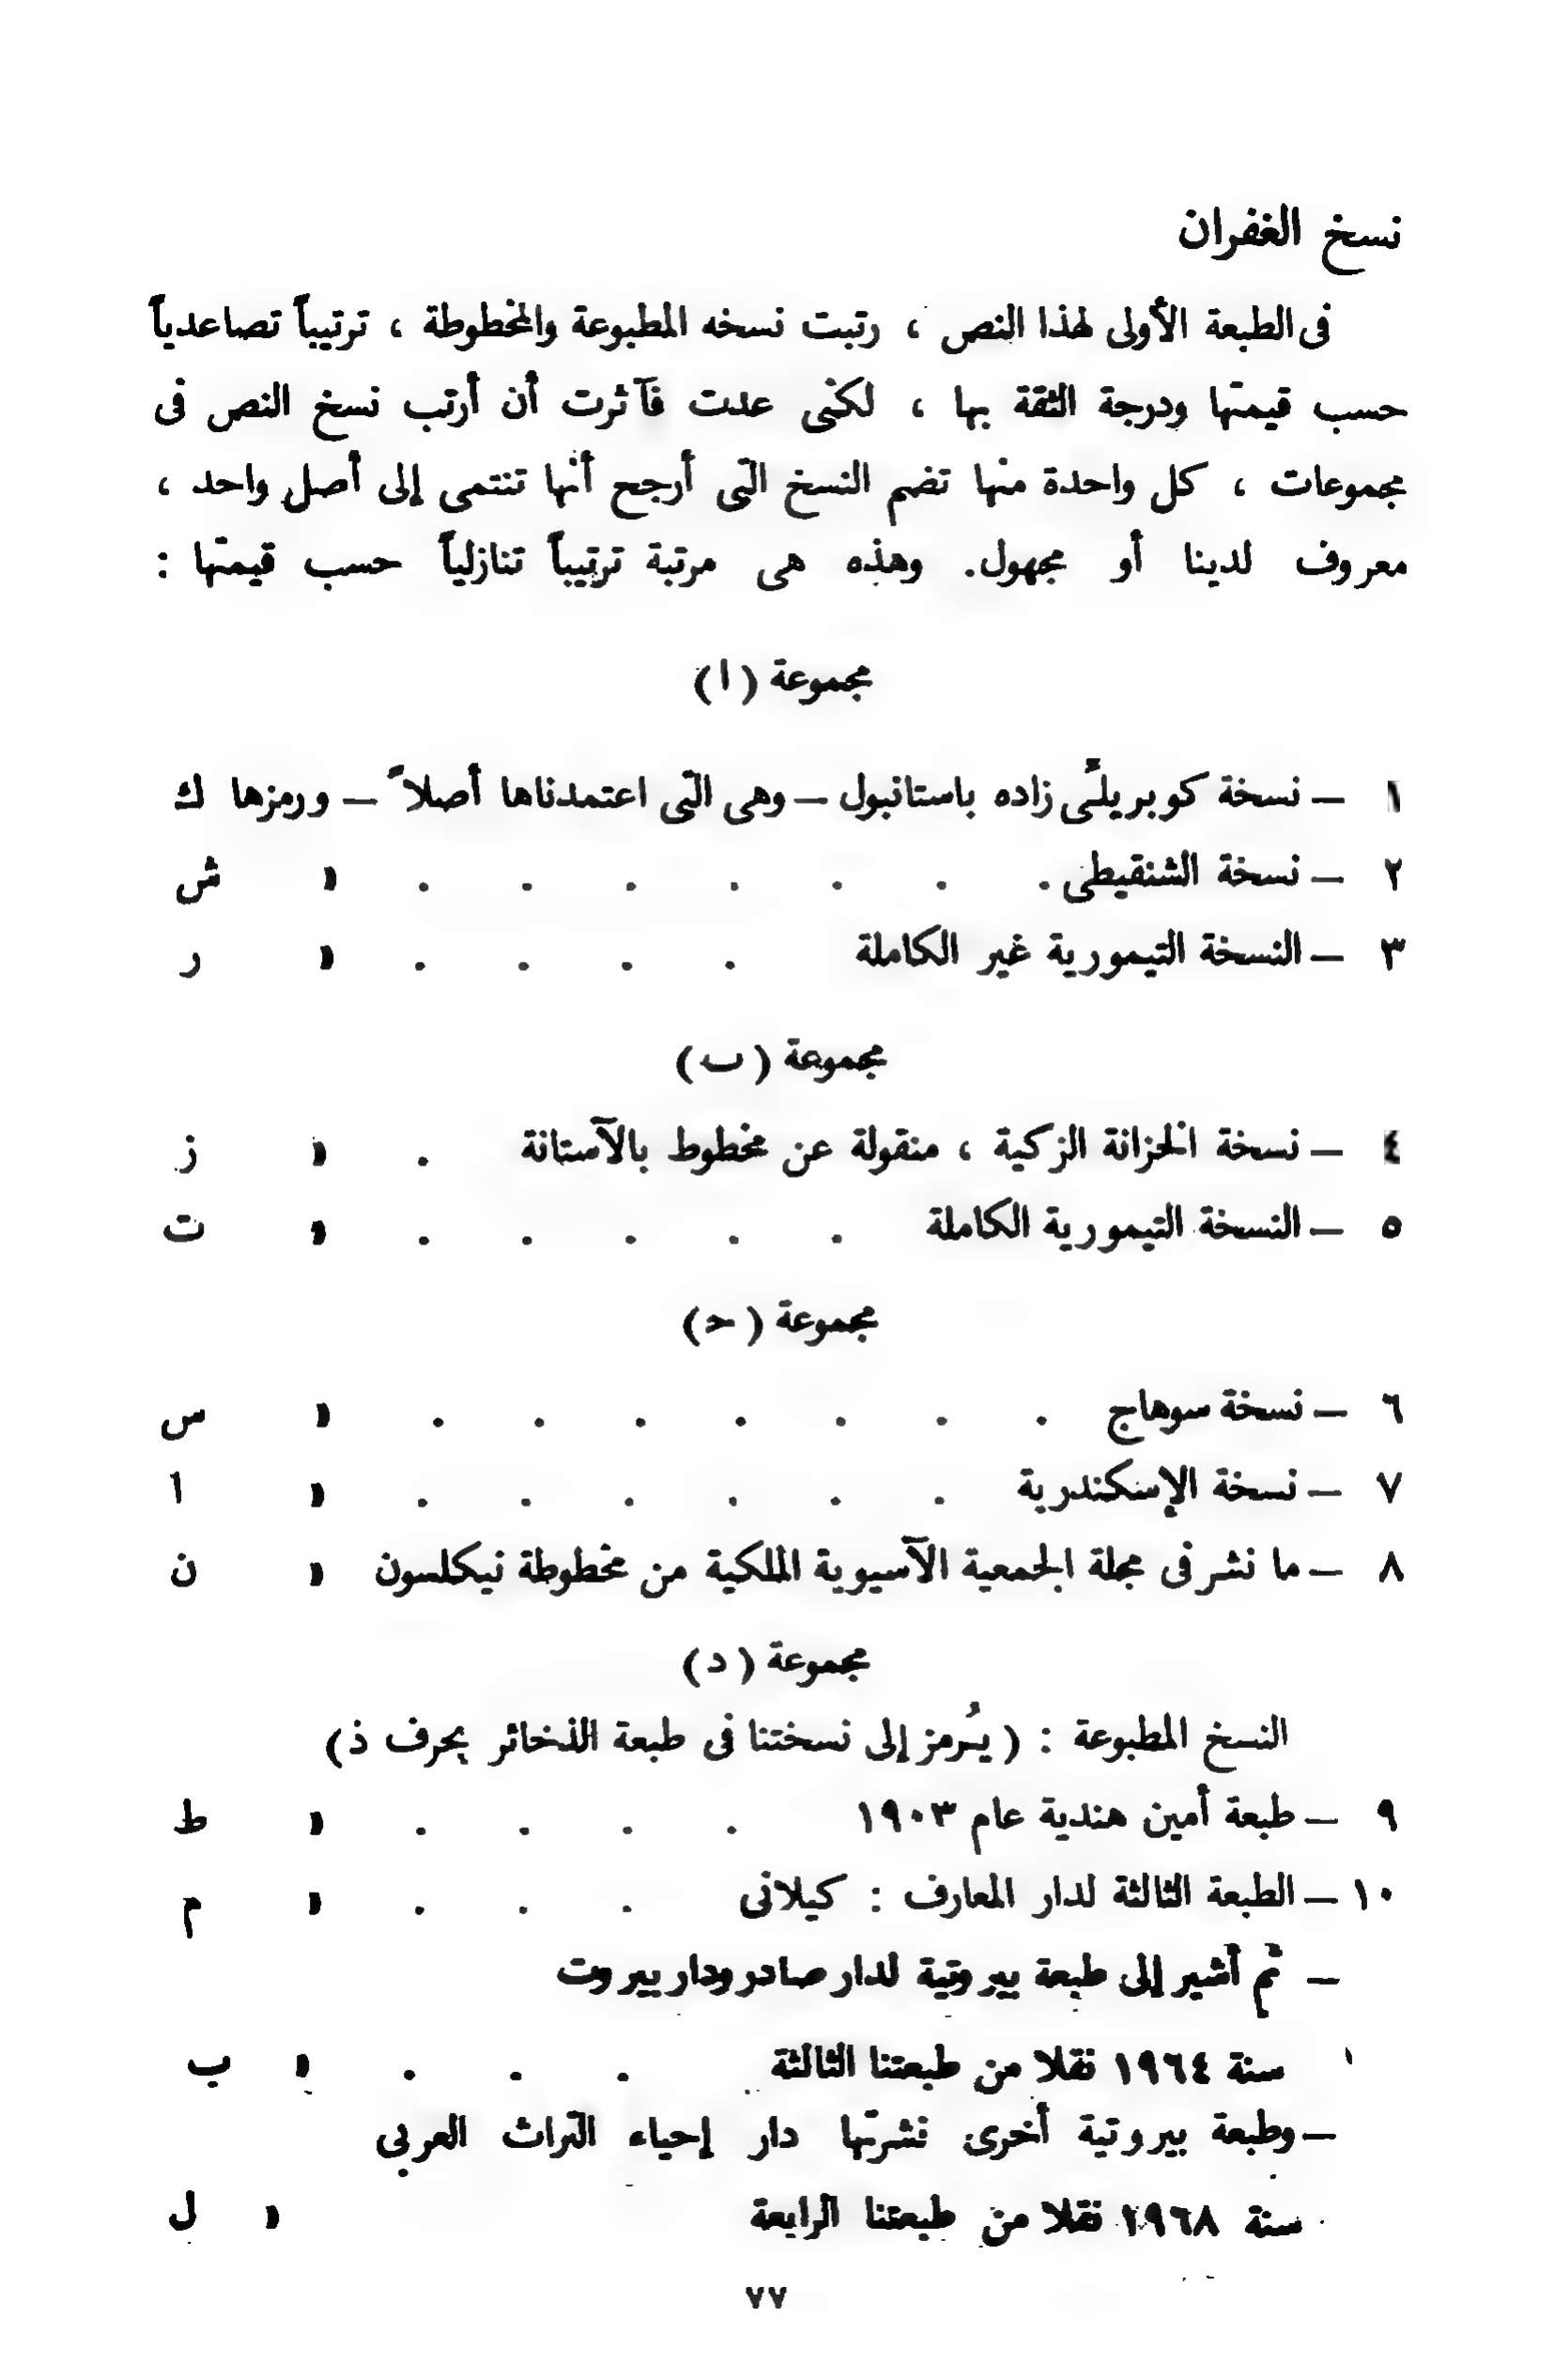 نسخ الغفران
فى الطبعة الأولى لهذا النص ، رتبت نسخه المطبوعة والمخطوطة ، ترتيباً تصاعدياً
حسب قيمتها ودرجة الثقة بها ، لكنى عدت فآثرت أن أرتب نسخ النص فى
مجموعات ، كل واحدة منها تضم النسخ التى أرجح أنها تنتمى إلى أصل واحد ،
معروف لدينا أو مجهول. وهذه هى مرتبة ترتيباً تنازلياً حسب قيمتها :
مجموعة (ا)
١ – نسخة كوبريلى زاده باستانبول – وهى التى اعتمدناها أصلاً – ورمزها ك
٢ – نسخة الشنقيطى . . . . . . . » ش
٣ – النسخة التيمورية غير الكاملة . . . . » ر
مجموعة (ب)
٤ – نسخة الخزانة الزكية ، منقولة عن مخطوط بالآستانة . » ز
٥ – النسخة التيمورية الكاملة . . . . . » ت
مجموعة (ح)
٦ – نسخة سوهاج . . . . . . . » س
٧ – نسخة الإسكندرية . . . . . . » ا
٨ – ما نشر فى مجلة الجمعية الآسيوية الملكية من مخطوطة نيكلسون » ن
مجموعة (د)
النسخ المطبوعة : (يُرمز إلى نسختنا فى طبعة الذخائر بحرف ذ)
٩ – طبعة أمين هندية عام ١٩٠٣ . . . . » ط
١٠ – الطبعة الثالثة لدار المعارف : كيلانى . . . » م
– ثم أشير إلى طبعة بيروتية لدار صادر ودار بيروت
سنة ١٩٦٤ نقلا من طبعتنا الثالثة . . . » ب
– وطبعة بيروتية أخرى نشرتها دار إحياء التراث العربى
سنة ١٩٦٨ نقلا من طبعتنا الرابعة » ل
٧٧